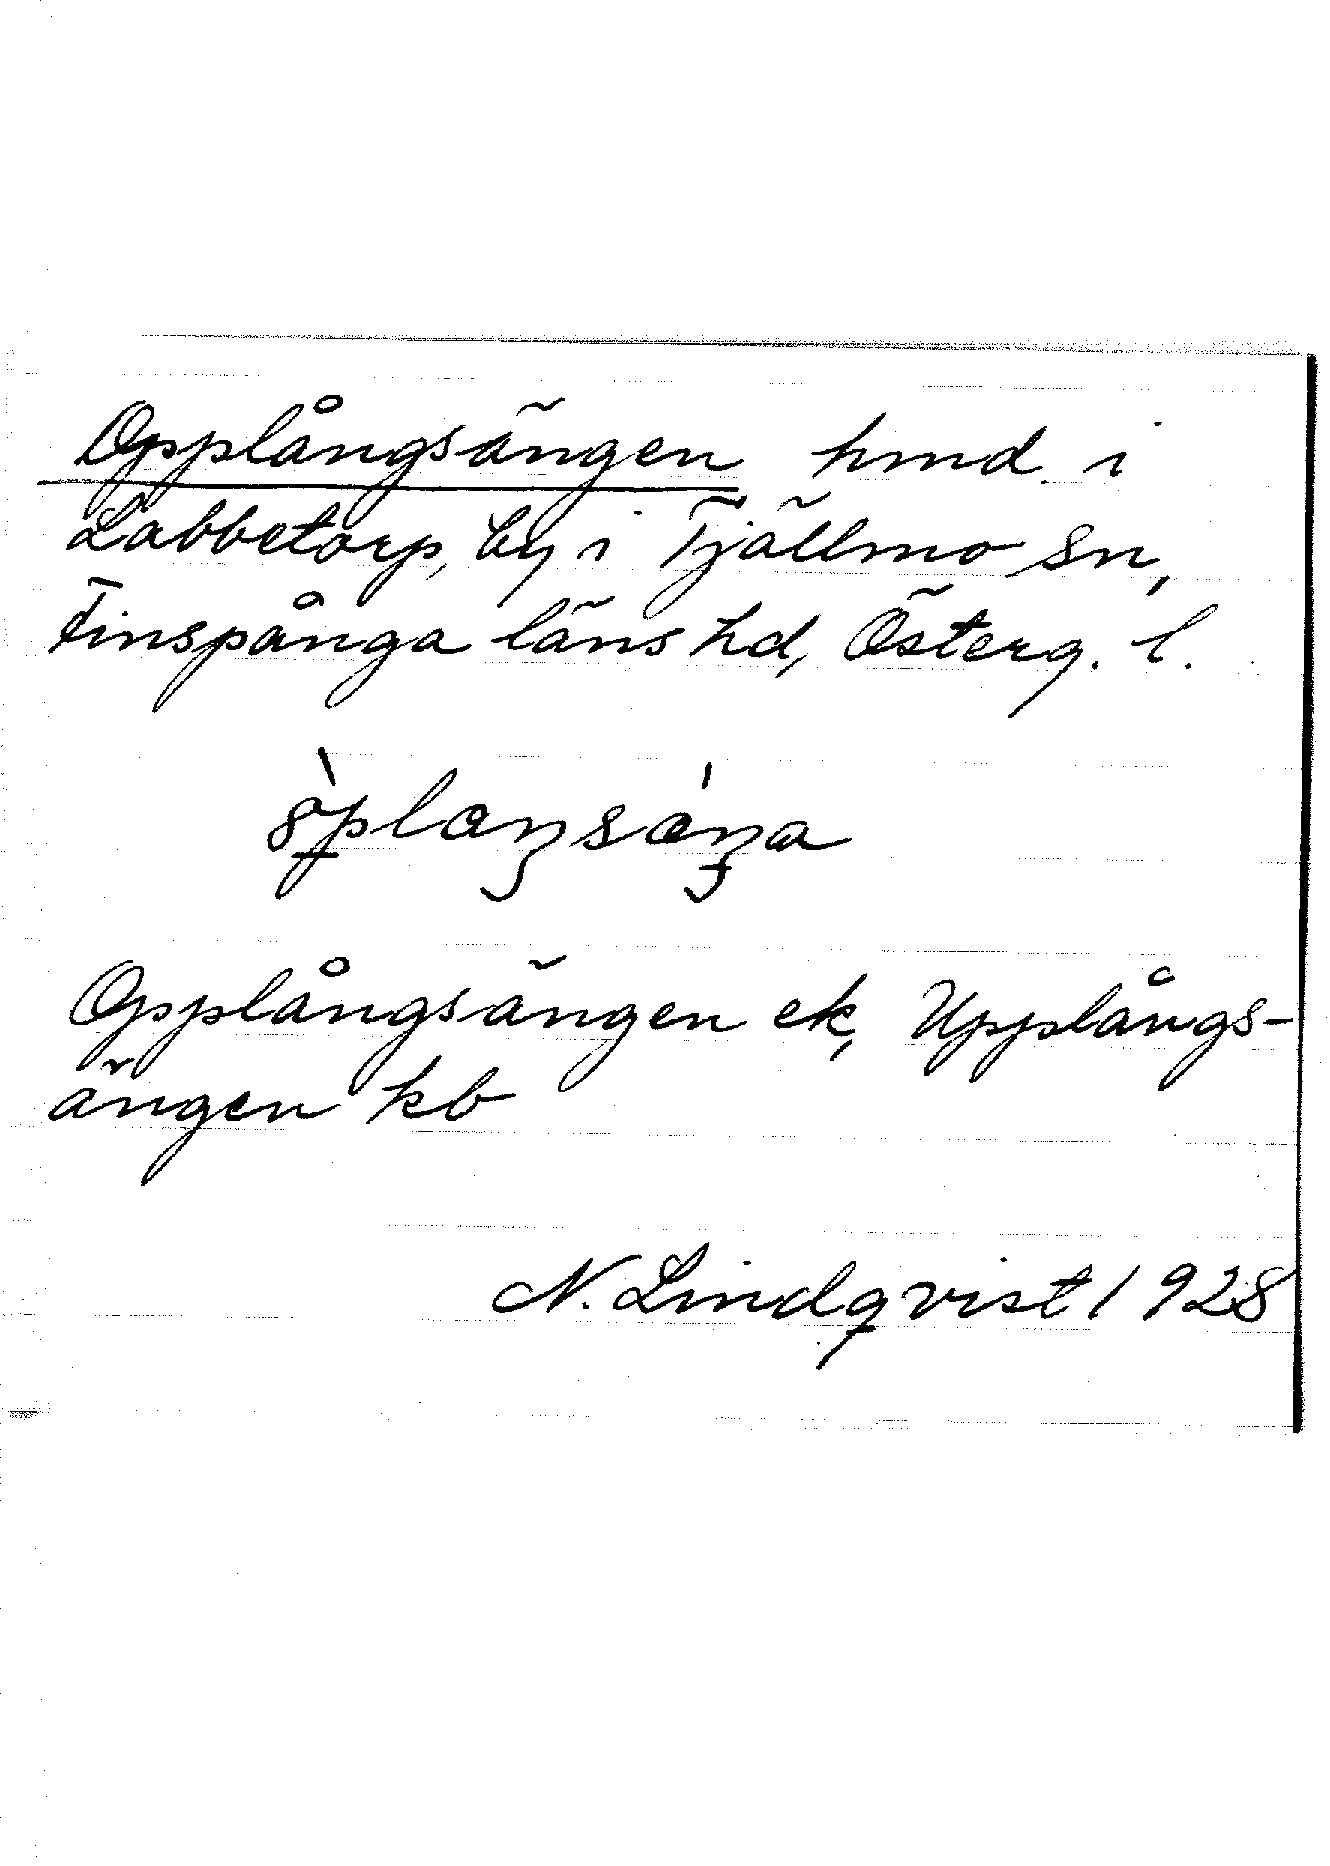 Opplångsängen hmd i
Labbetorp, by i Tjällmo sn,
Finspånga läns hd, Österg. l.
Opplångsängen ek, Upplångs-
ängen kb
N. Lindqvist 1928